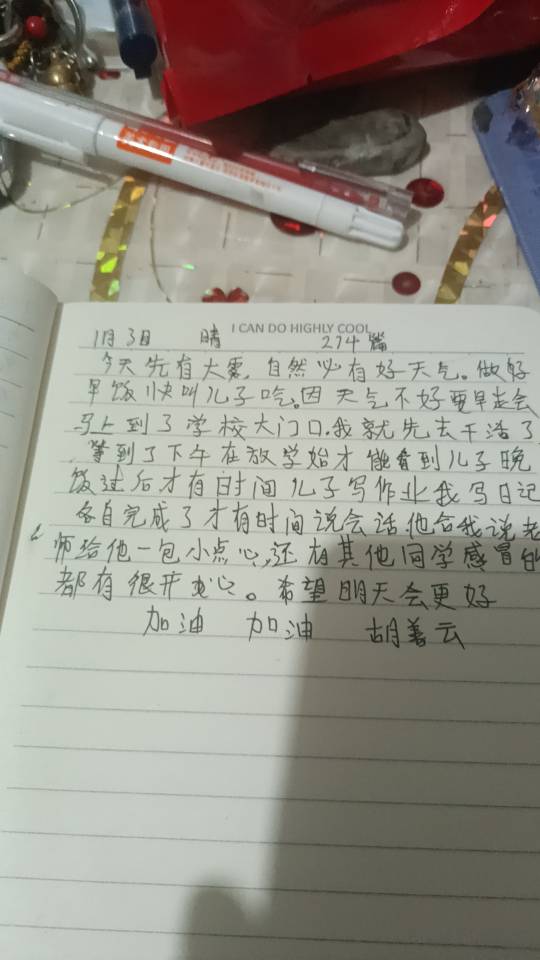 I CAN DO HIGHLY COOL
1月3日 晴 274篇
今天先有大雾,自然必有好天气。做好
早饭快叫儿子吃。因天气不好要早走会
马上到了学校大门口.我就先去干活了
等到了下午在放学始才能看到儿子晚
饭过后才有时间儿子写作业我写日记
各自完成了才有时间说会话他给我说老
师给他一包小点心,还有其他同学感冒的
都有很开心。希望明天会更好
加油 加油 胡善云